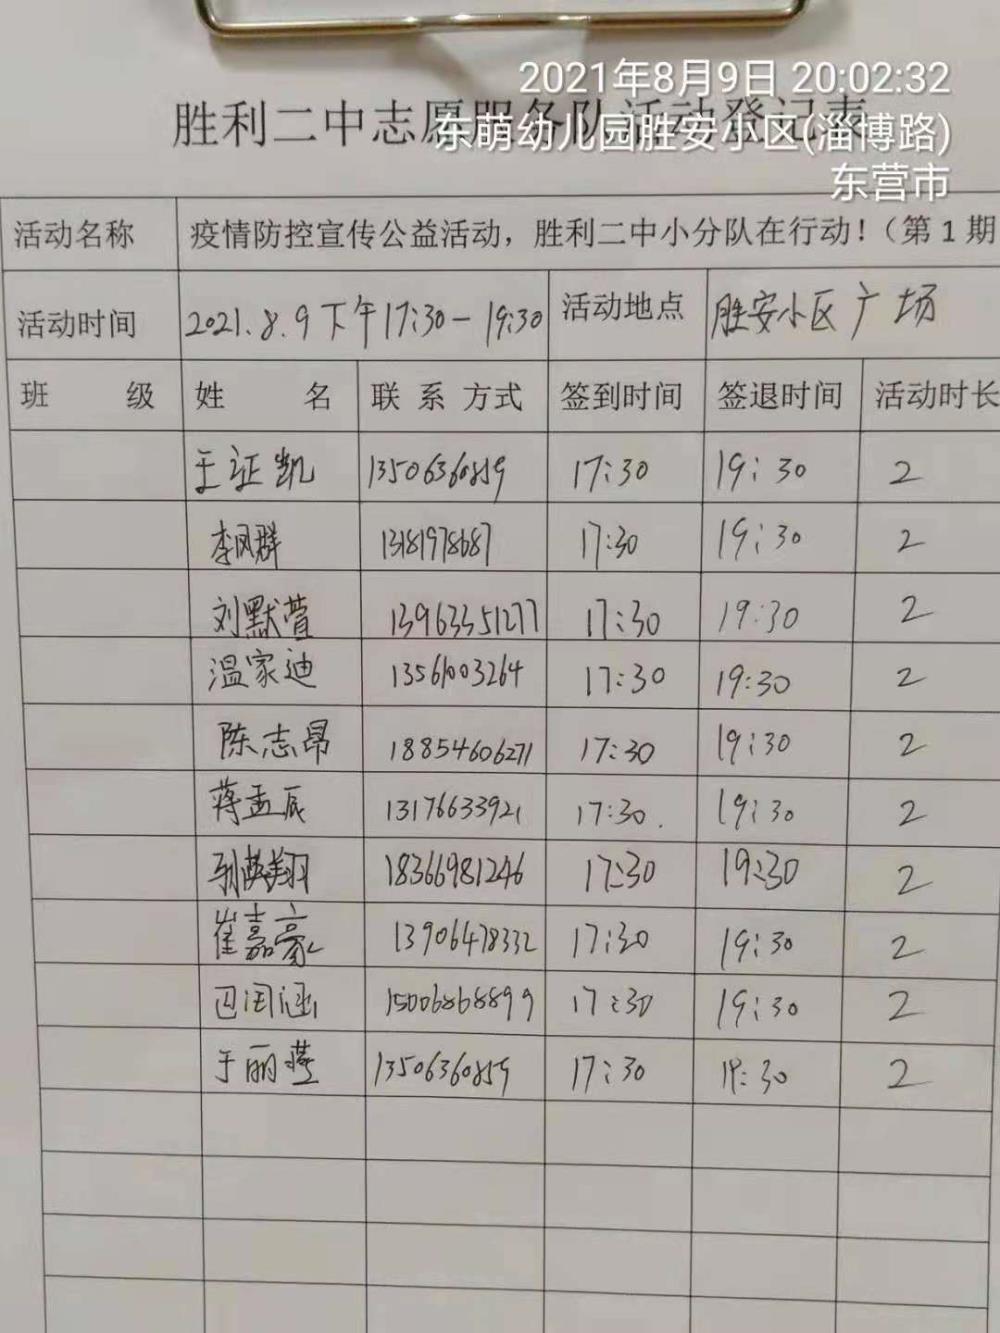 2021年8月9日 20:02:32
胜利二中志愿服务队活动登记表
东萌幼儿园胜安小区(淄博路)
东营市
活动名称 疫情防控宣传公益活动，胜利二中小分队在行动！（第1期
活动时间 2021.8.9下午17:30-19:30 活动地点 胜安小区广场
班 级 姓 名 联系方式 签到时间 签退时间 活动时长
王证凯 13506360859 17:30 19:30 2
李凤群 13181978687 17:30 19:30 2
刘默萱 13963351277 17:30 19:30 2
温家迪 13561003264 17:30 19:30 2
陈志昂 18854606271 17:30 19:30 2
蒋孟辰 13176633921 17:30. 19:30 2
18366981246 17:30 19:30 2
崔嘉豪 13906478332 17:30 19:30 2
巴闰涵 15006868899 17:30 19:30 2
于丽莲 13506360859 17:30 19:30 2